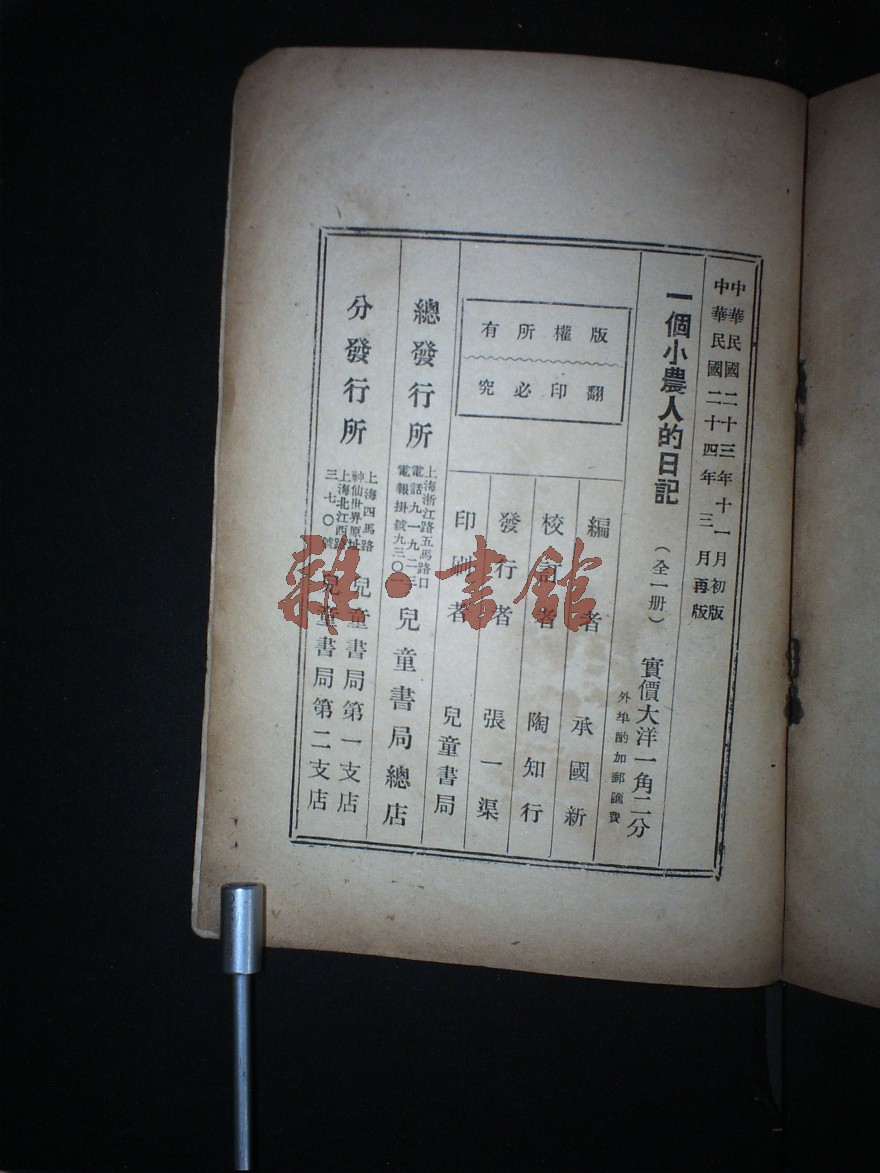 中華民國二十三年十一月初版
中華民國二十四年三月再版
一個小農人的日記
（全一册）
實價大洋一角二分
外埠酌加郵匯費
版權所有
翻印必究
編者 承國新
校訂者 陶知行
發行者 張一渠
印刷者 兒童書局
總發行所
上海浙江路五馬路口
電話九一九二三
電報掛號九三〇一
兒童書局總店
分發行所
上海四馬路
神仙世界原址
兒童書局第一支店
上海北江西路
三七〇號
兒童書局第二支店
雜·書館